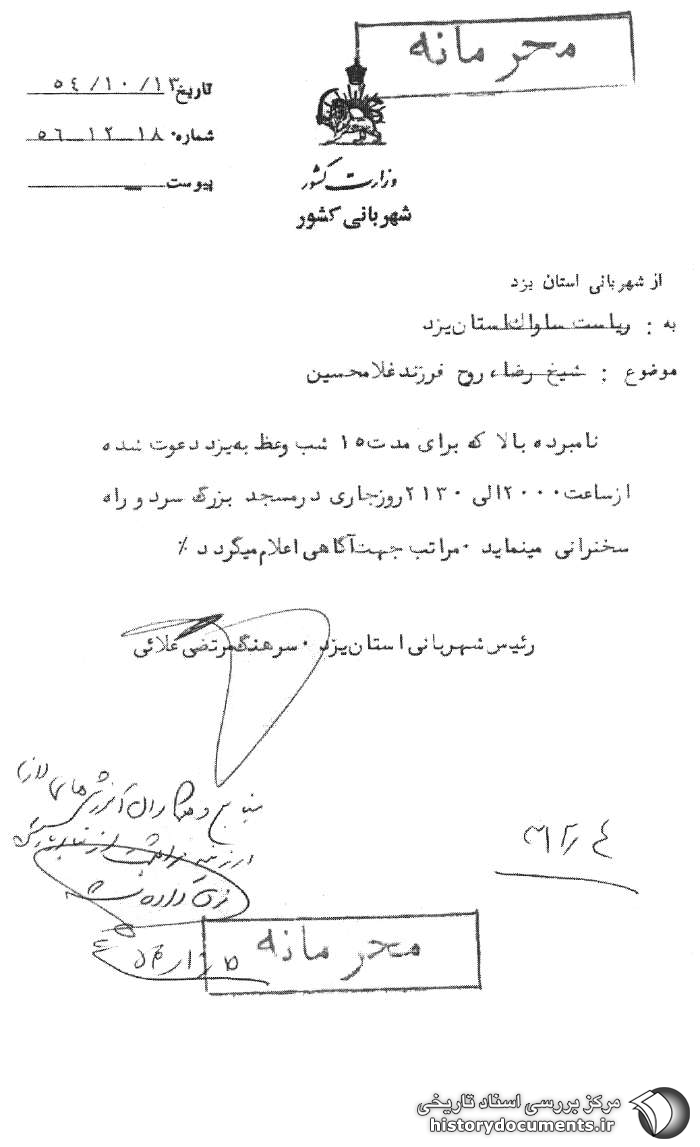 محرمانه
تاریخ ۵٤/۱۰/۱۳
شماره ۵٦ــ۱۲ــ۱۸۰
پیوست ــ
وزارت کشور
شهربانی کشور
از شهربانی استان یزد
به : ریاست ساواک استان یزد
موضوع : شیخ رضاء روح فرزند غلامحسین
نامبرده بالا که برای مدت ۱۵ شب وعظ به یزد دعوت شده
از ساعت ۲۰۰۰ الی ۲۱۳۰ روز جاری در مسجد بزرگ سرد و راه
سخنرانی مینماید ۰ مراتب جهت آگاهی اعلام میگردد ٪
رئیس شهربانی استان یزد ۰ سرهنگ مرتضی علائی
داده شد
محرمانه
مرکز بررسی اسناد تاریخی
historydocuments.ir